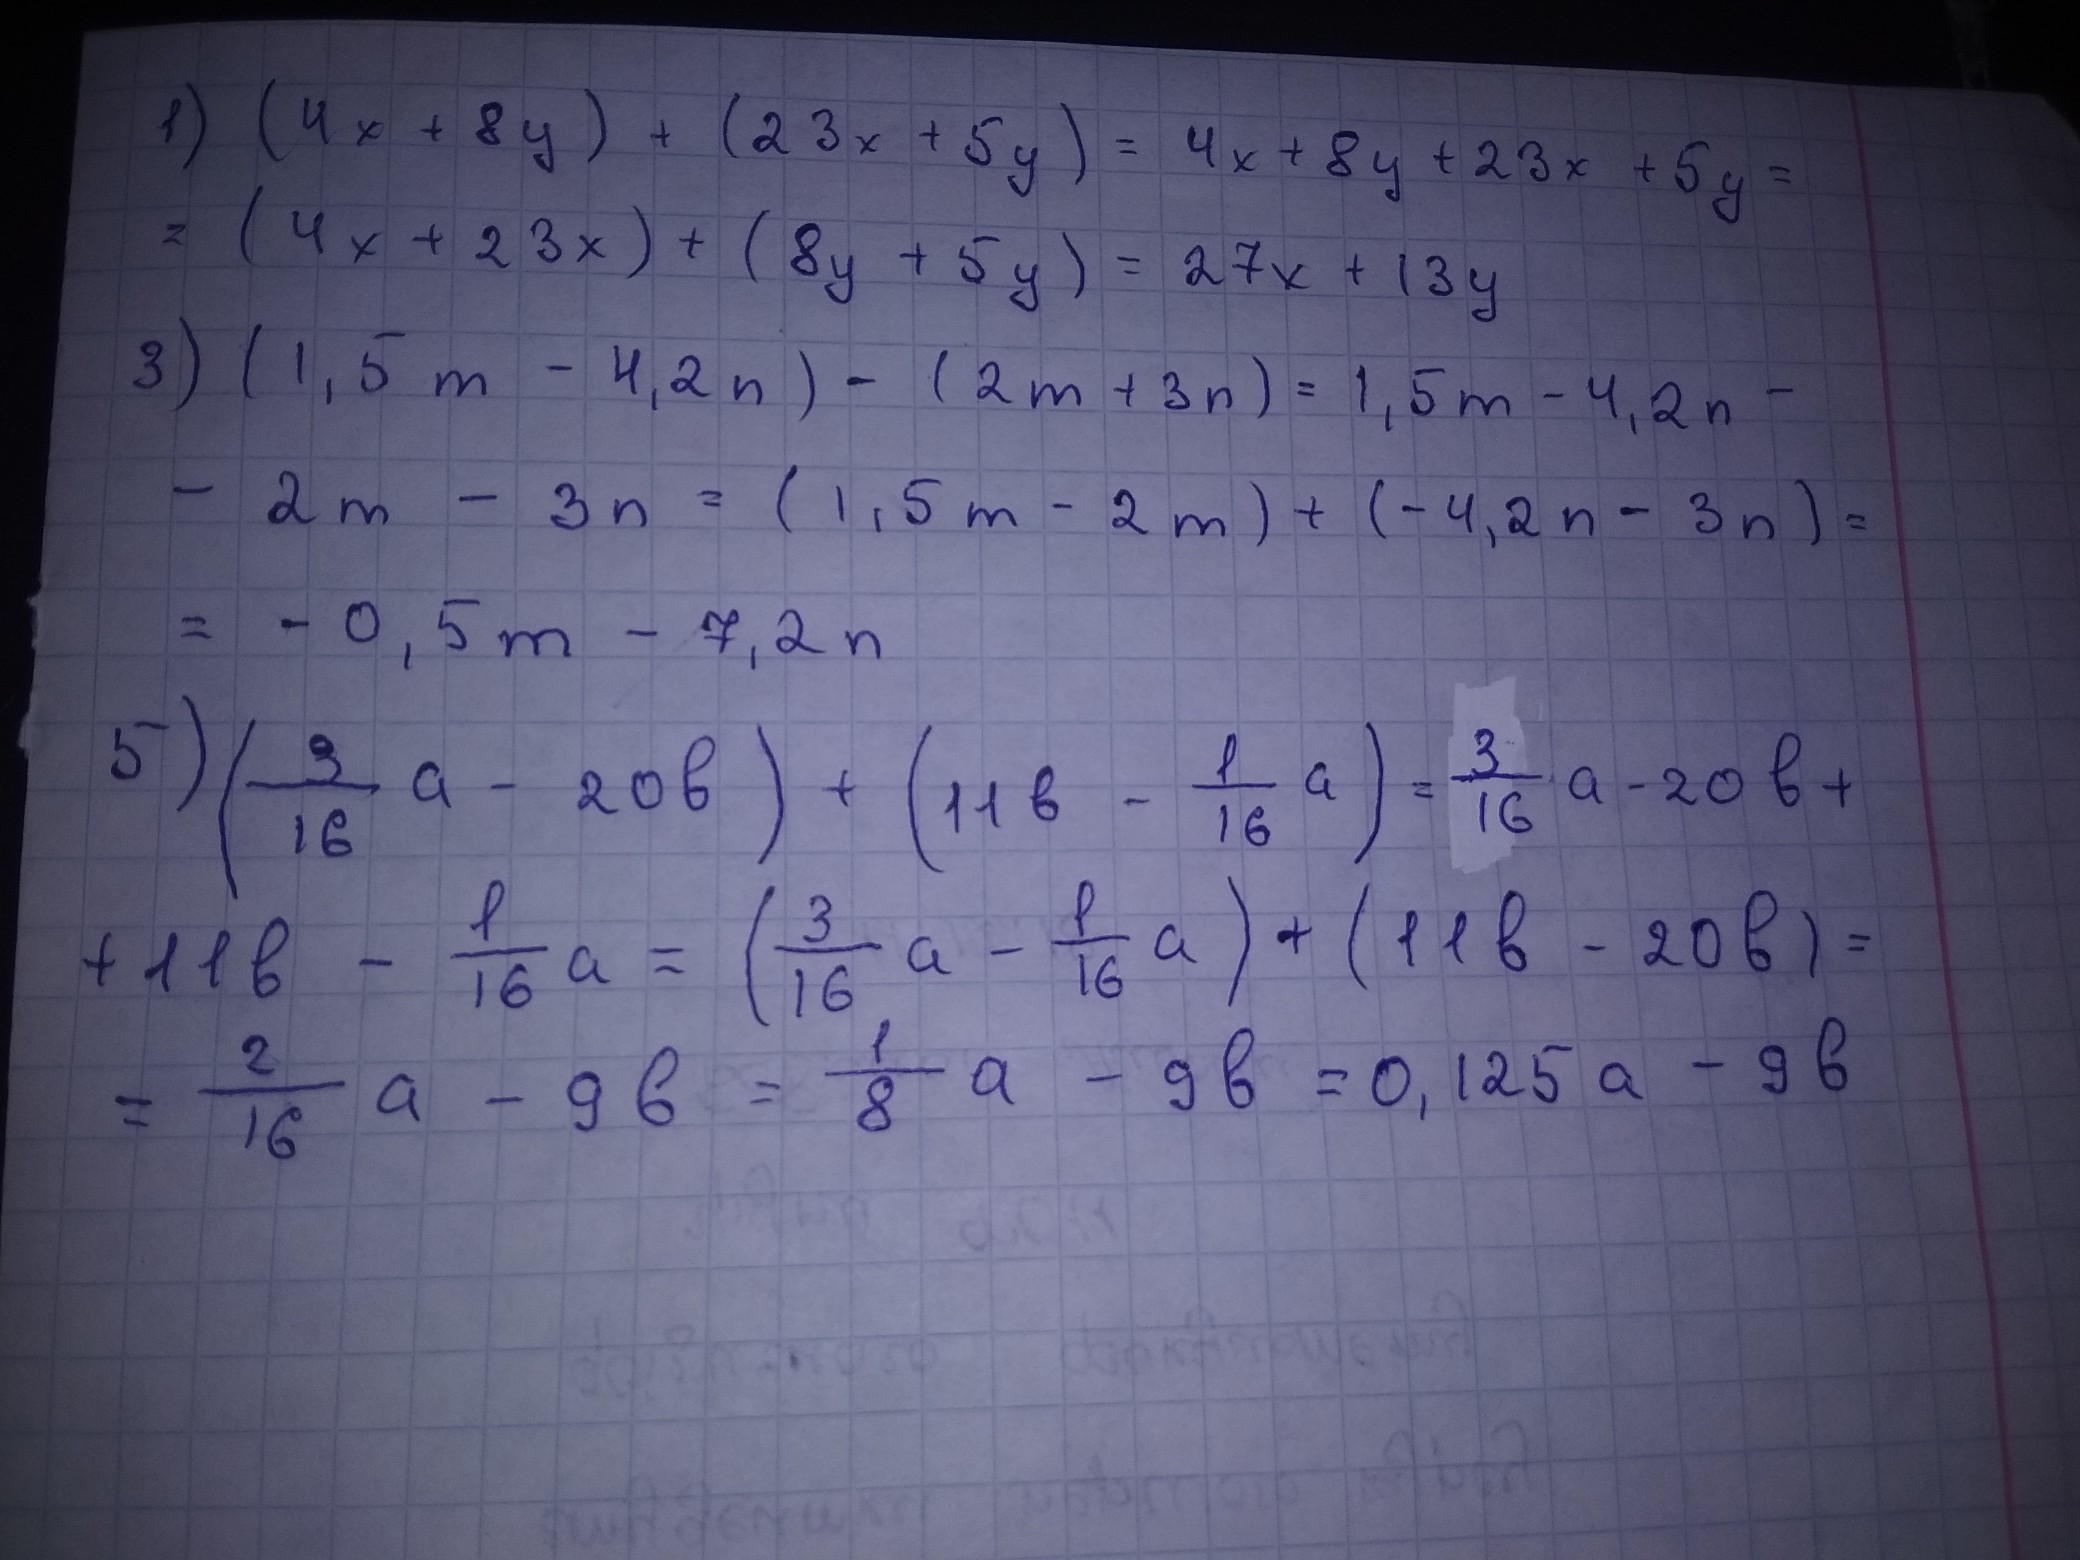 1) (4x + 8y) + (23x + 5y) = 4x + 8y + 23x + 5y =
= (4x + 23x) + (8y + 5y) = 27x + 13y
3) (1,5m - 4,2n) - (2m + 3n) = 1,5m - 4,2n -
- 2m - 3n = (1,5m - 2m) + (-4,2n - 3n) =
= - 0,5m - 7,2n
5) (3/16 a - 20в) + (11в - 1/16 a) = 3/16 a - 20в +
+ 11в - 1/16 a = (3/16 a - 1/16 a) + (11в - 20в) =
= 2/16 a - 9в = 1/8 a - 9в = 0,125a - 9в